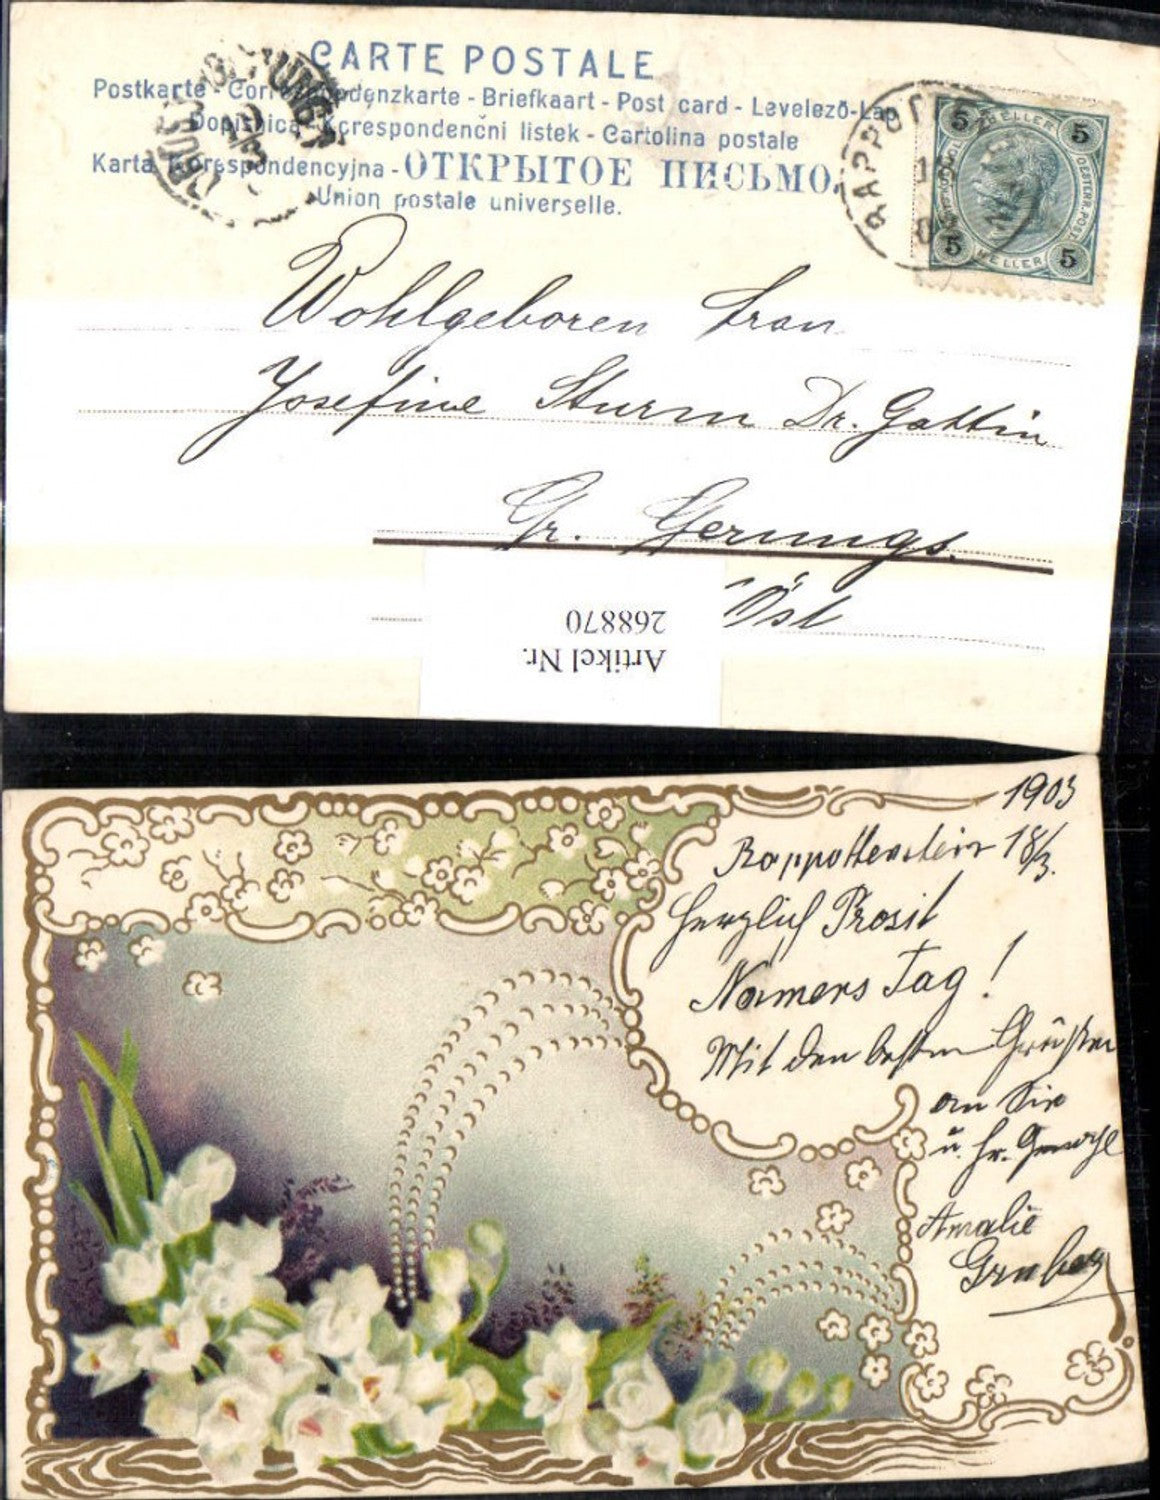 CARTE POSTALE
Postkarte - Correspondenzkarte - Briefkaart - Post card - Levelező-Lap
Dopisnica Korespondenčni listek - Cartolina postale
Karta Korespondencyjna - ОТКРЫТОЕ ПИСЬМО.
Union postale universelle.
RAPPOTTENSTEIN
5 HELLER 5
OESTERR. POST
5 HELLER 5
Wohlgeboren Frau
Josefine Sturm Dr. Gattin
Gr. Gerungs.
Öst
Artikel Nr.
268870
1903
Rappottenstein 18/3.
Herzlich Prosit
Namens Tag!
Mit den besten Grüßen
an Sie
u. Hr. Gemahl
Amalie
Gruber